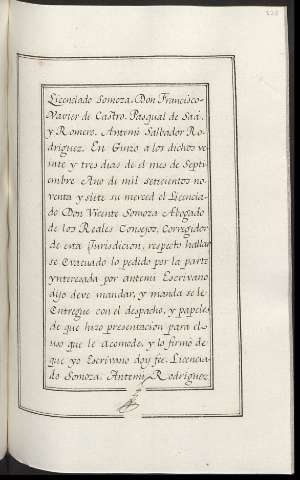 Licenciado Somoza. Don Francisco
Xavier de Castro. Pasqual de Saá,
y Romero. Antemi Salbador Ro-
driguez. En Ginzo a los dichos ve
inte y tres dias de el mes de Septi
embre Ano de mil setecientos no
venta y siete su merced el Licencia
do Don Vicente Somoza Abogado
de los Reales Consejos, Corregidor
de esta Jurisdicion, respecto hallar
se Evacuado lo pedido por la parte
ynteresada por antemi Escrivano
dijo deve mandar, y manda se le
Entregue con el despacho, y papeles
de que hizo presentacion para el
uso que le acomode, y lo firmo de
que yo Escrivano doy fee. Licencia
do Somoza. Antemi Rodriguez